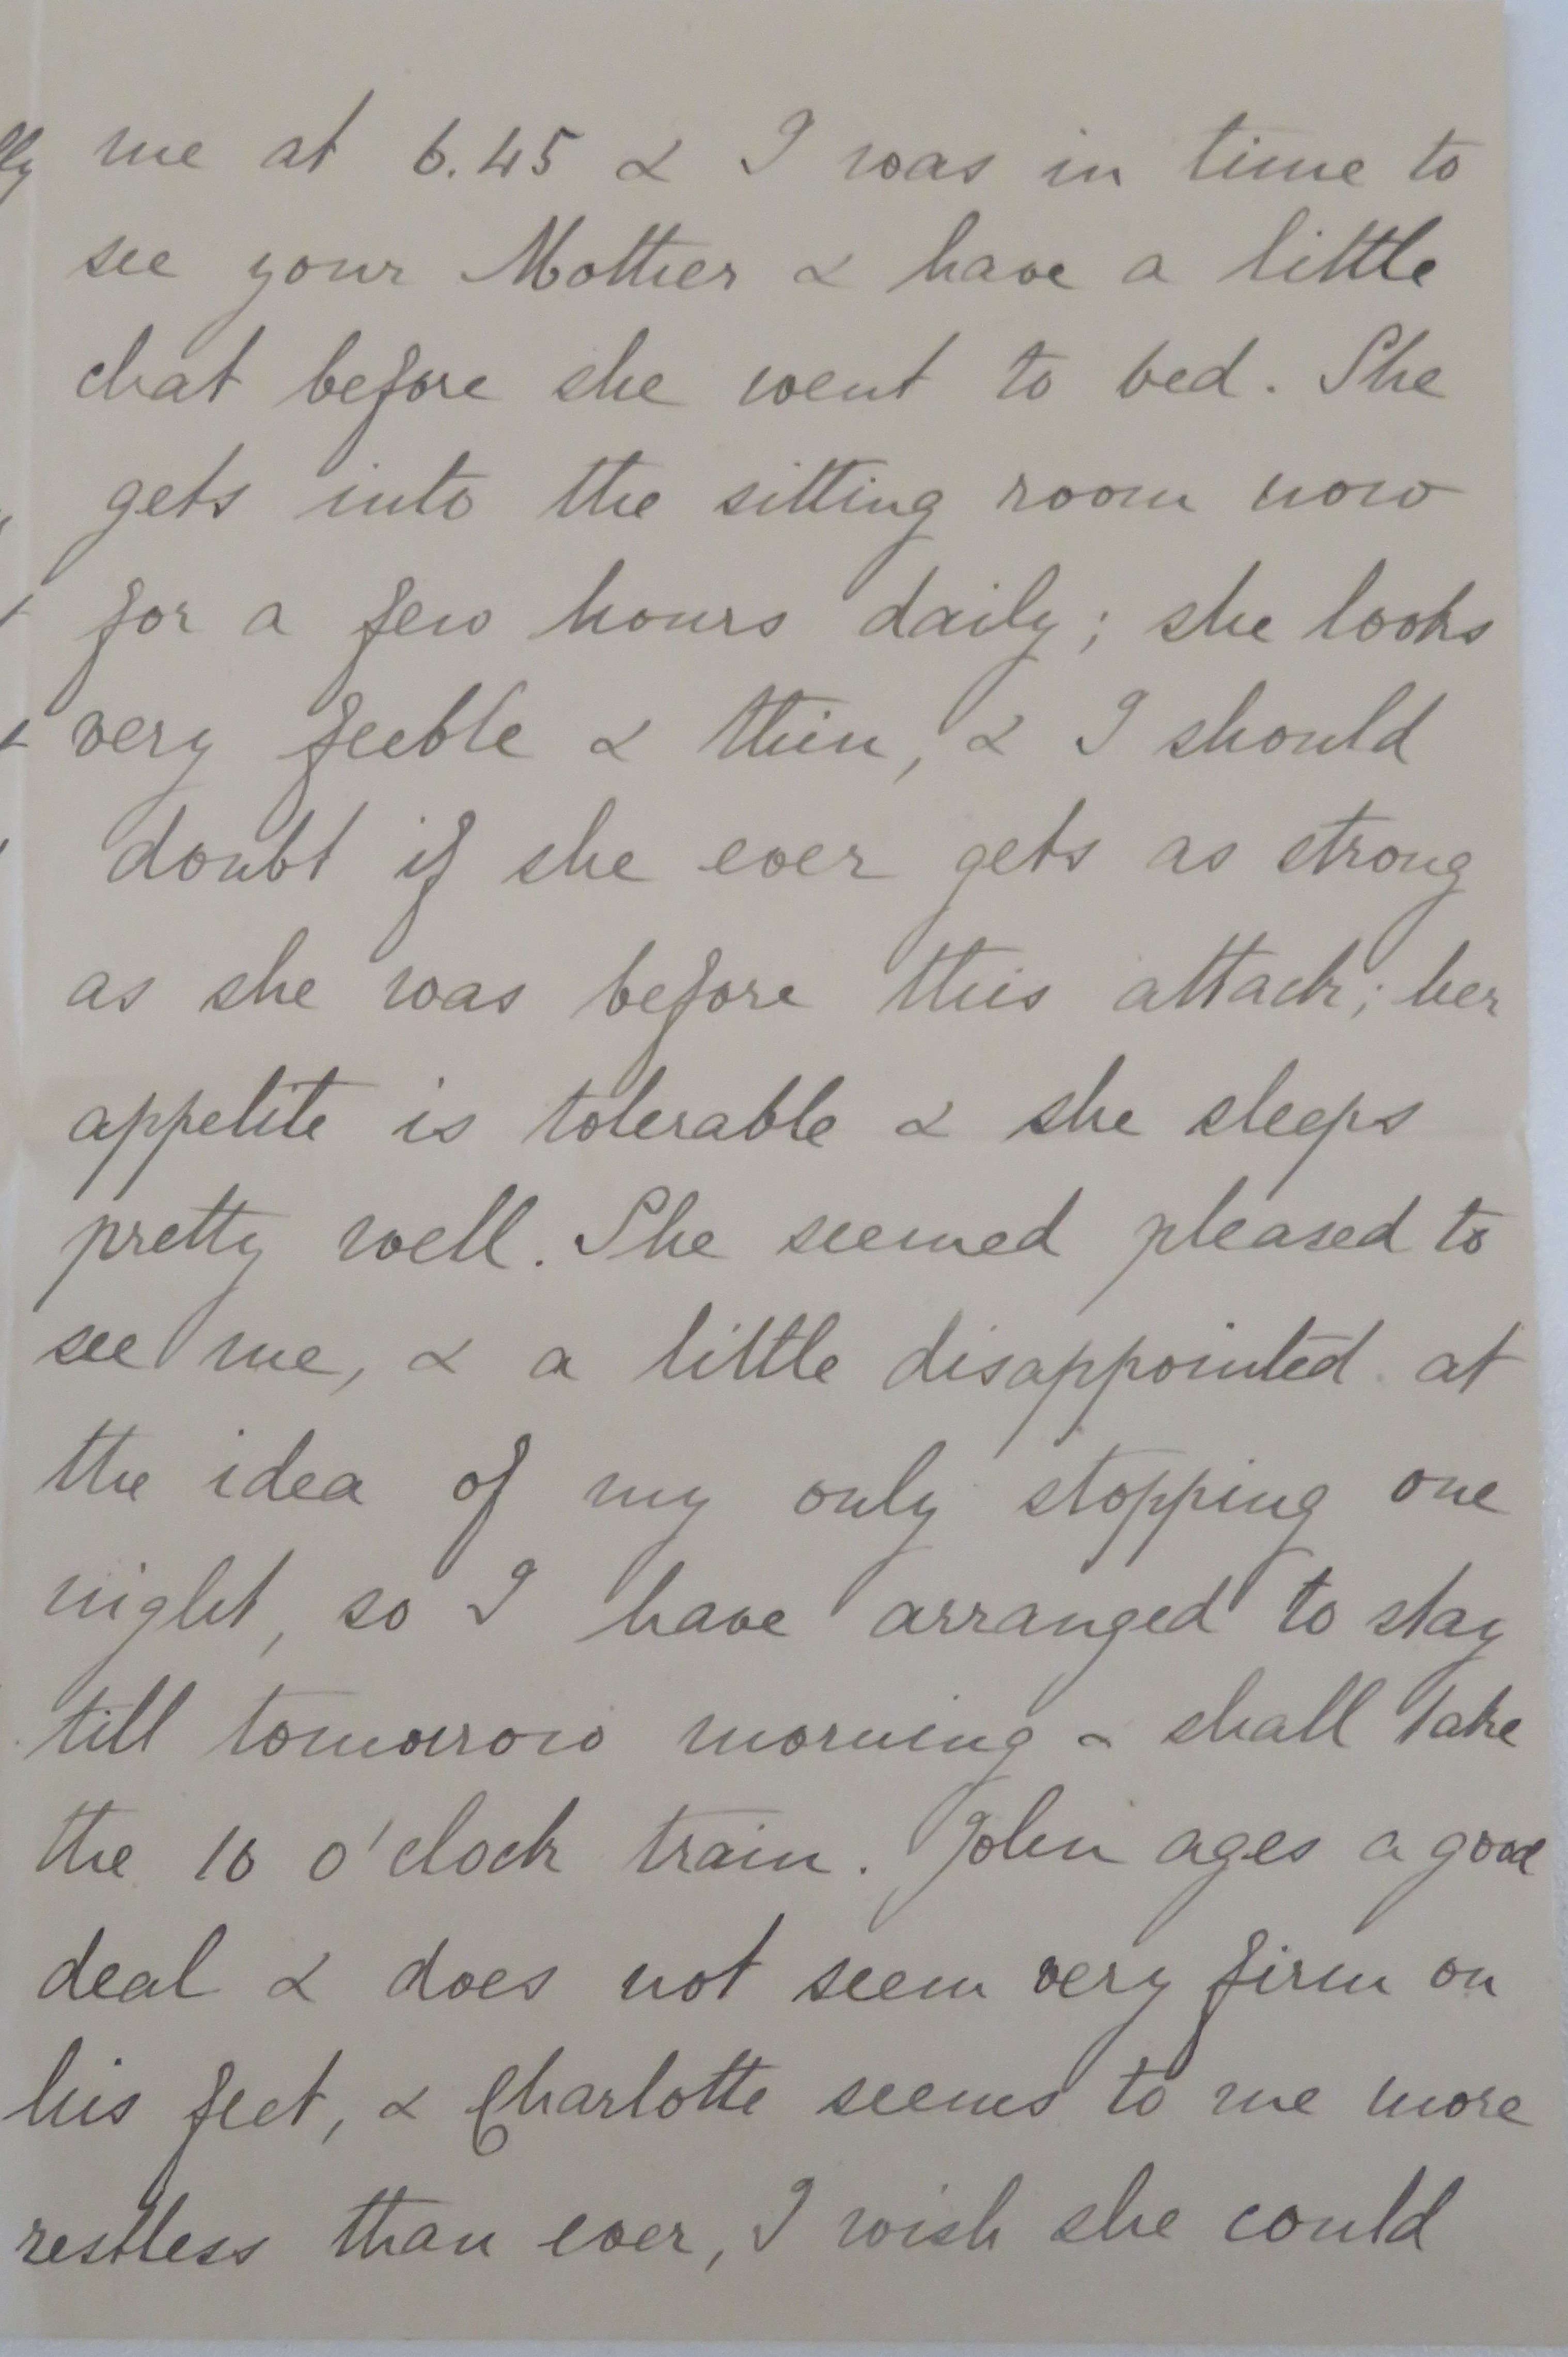 me at 6.45 & I was in time to
see your Mother & have a little
chat before she went to bed. She
gets into the sitting room now
for a few hours daily; she looks
very feeble & thin, & I should
doubt if she ever gets as strong
as she was before this attack; her
appetite is tolerable & she sleeps
pretty well. She seemed pleased to
see me, & a little disappointed at
the idea of my only stopping one
night, so I have arranged to stay
till tomorrow morning & shall take
the 10 o'clock train. John ages a good
deal & does not seem very firm on
his feet, & Charlotte seems to me more
restless than ever, I wish she could